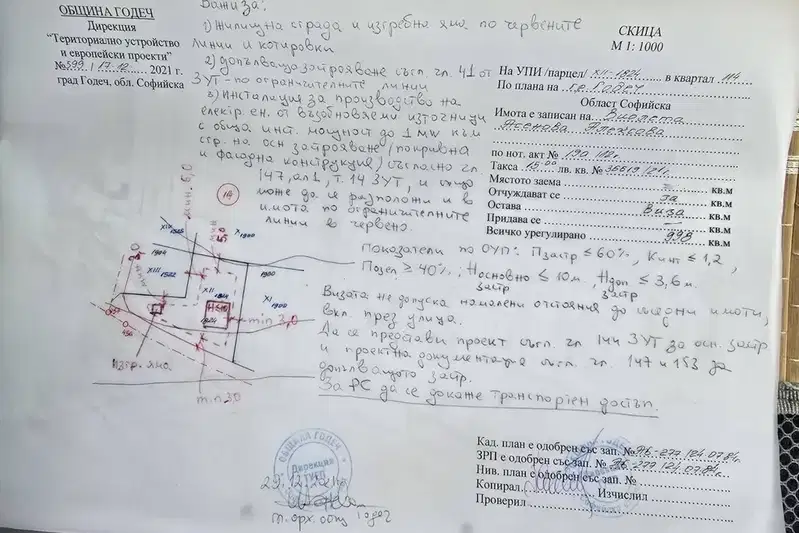 ОБЩИНА ГОДЕЧ
Дирекция
"Териториално устройство
и европейски проекти"
№ 599 / 17.12. 2021 г.
град Годеч, обл. Софийска
Важи за:
1) Жилищна сграда и изгребна яма по червените
линии и котировки
2) допълващо застрояване съгл. чл. 41 от
ЗУТ - по ограничителните линии
3) Инсталация за производство на
електр. ен. от възобновяеми източници
с обща инст. мощност до 1 MW към
стр. на осн застрояване (покривна
и фасадна конструкция) съгласно чл.
147, ал1, т. 14 ЗУТ, и също
може да се разположи и в
имота по ограничителните
линии в червено.
СКИЦА
М 1: 1000
На УПИ /парцел/ XII-1824 в квартал 114
По плана на гр. Годеч
Област Софийска
Имота е записан на Виолета
Асенова
по нот. акт № 190/12г.
Такса 15.00 лв. кв. № 36619/21г.
Мястото заема – кв.м
Отчуждават се за кв.м
Остава Виза кв.м
Придава се – кв.м
Всичко урегулирано 998 кв.м
Показатели по ОУП: Пзастр ≤ 60%, Кинт ≤ 1,2,
Позел ≥ 40%; Носновно застр ≤ 10м, Ндоп застр ≤ 3,6м.
Визата не допуска намалени отстояния до съседни имоти,
вкл. през улица.
Да се представи проект съгл. чл. 144 ЗУТ за осн. застр
и проектна документация съгл. чл. 147 и 153 за
допълващото застр.
За РС да се докаже транспортен достъп.
114
мин. 6,0
мин 5,0
XIX 1825
X 1900
1904
XIII 1822
XII 1824
1900
XI 1900
1824
min 3,0
Изгр. яма
min 3,0
ОБЩИНА ГОДЕЧ
Дирекция
ТУЕП
29.12.21г.
гл. арх. общ Годеч
Кад. план е одобрен със зап. № АБ-277/24.07.84.
ЗРП е одобрен със зап. № АБ-277/24.07.84г.
Нив. план е одобрен със зап. №
Копирал Изчислил
Проверил